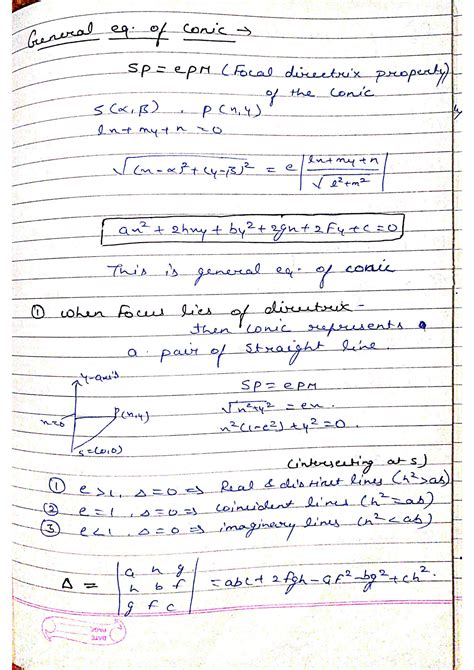 General eq. of conic →
SP = ePM (Focal directrix property)
of the conic
S(α,β) , P(x,y)
lx+my+n=0
√((x-α)²+(y-β)²) = e |lx+my+n / √(l²+m²)|
ax²+2hxy+by²+2gx+2fy+c=0
This is general eq. of conic
① when Focus lies of directrix -
then conic represents a
a pair of straight line
y-axis
x=0
P(x,y)
S=(0,0)
SP = ePM
√(x²+y²) = ex
x²(1-e²)+y²=0.
(intersecting at S)
① e>1, Δ=0 ⇒ Real & distinct lines (h²>ab)
② e=1, Δ=0 ⇒ coincident lines (h²=ab)
③ e<1, Δ=0 ⇒ imaginary lines (h²<ab)
Δ = |a h g
h b f
g f c| = abc+2fgh-af²-bg²+ch².